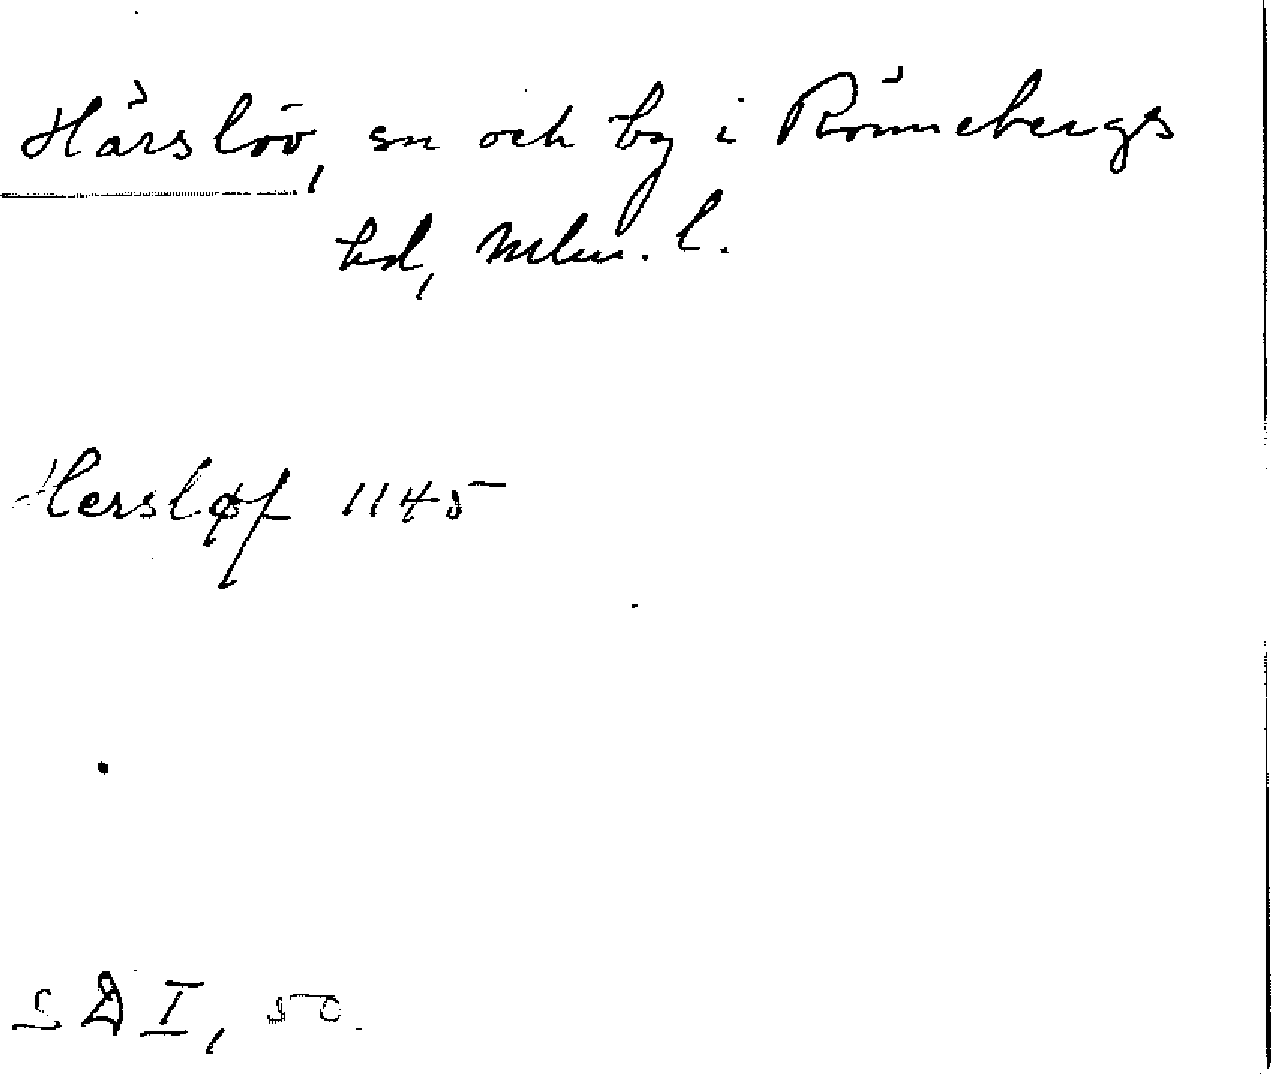 Härslöv, sn och by i Rönnebergs
hd, Mlm. l.
Hersløf 1145
SD I, 50.